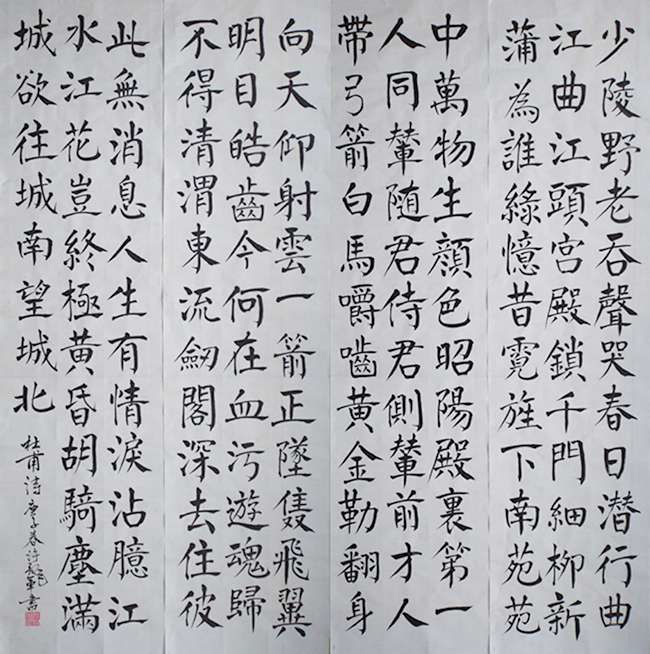 少陵野老吞聲哭春日潛行曲
江曲江頭宮殿鎖千門細柳新
蒲為誰綠憶昔霓旌下南苑苑
中萬物生顏色昭陽殿裏第一
人同輦随君侍君側輦前才人
帶弓箭白馬嚼嚙黃金勒翻身
向天仰射雲一箭正墜隻飛翼
明目皓齒今何在血污遊魂歸
不得清渭東流劒閣深去住彼
此無消息人生有情淚沾臆江
水江花豈終極黃昏胡騎塵滿
城欲往城南望城北
杜甫詩庚子春許書